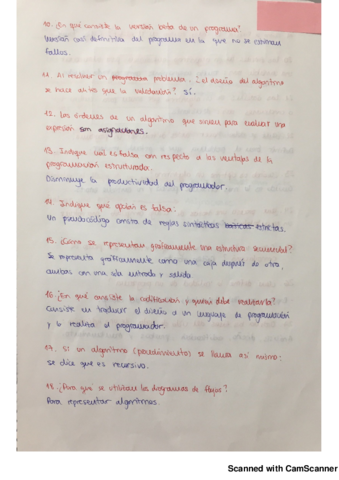 10. ¿En qué consiste la versión beta de un programa?
Versión casi definitiva del programa en la que no se estiman
fallos.
11. Al resolver un programa problema. ¿el diseño del algoritmo
se hace antes que la validación? Sí.
12. Las órdenes de un algoritmo que sirven para evaluar una
expresión son asignaciones.
13. Indique cuál es falsa con respecto a las ventajas de la
programación estructurada.
Disminuye la productividad del programador.
14. Indique qué opción es falsa:
Un pseudocódigo consta de reglas sintácticas estrictas.
15. ¿Cómo se representan gráficamente una estructura secuencial?
Se representa gráficamente como una caja después de otra,
ambas con una sola entrada y salida.
16. ¿En qué consiste la codificación y quién debe realizarla?
Consiste en traducir el diseño a un lenguaje de programación
y lo realiza el programador.
17. Si un algoritmo (procedimiento) se llama así mismo:
se dice que es recursivo.
18. ¿Para qué se utilizan los diagramas de flujos?
Para representar algoritmos.
Scanned with CamScanner